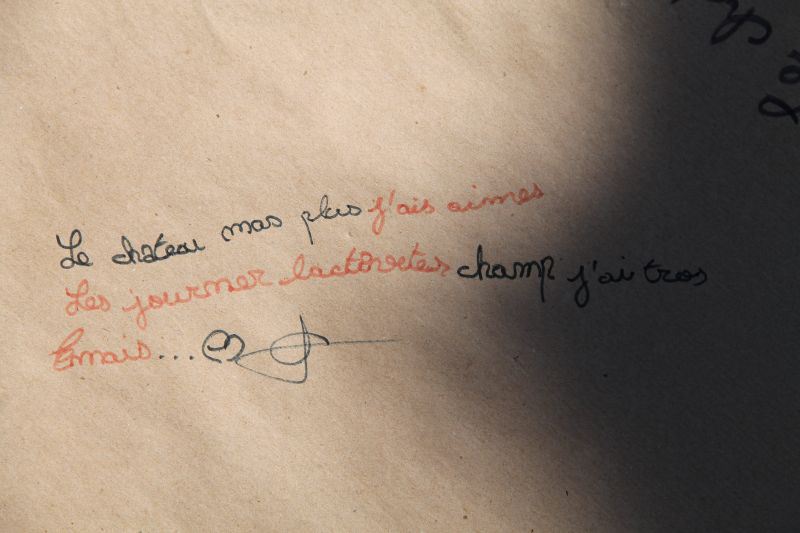 Le chateau mas plus j'ais aimes
Les journer lactivites champ j'ai tros
Emais...